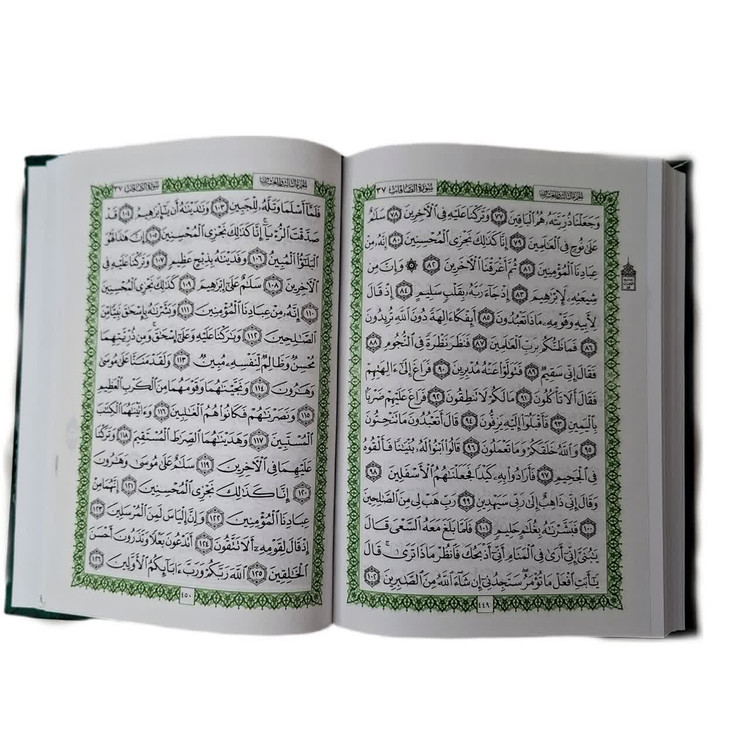 الجزء الثالث والعشرون سورة الصافات ٣٧
وَجَعَلْنَا ذُرِّيَّتَهُۥ هُمُ الْبَاقِينَ ٧٧ وَتَرَكْنَا عَلَيْهِ فِي الْآخِرِينَ ٧٨ سَلَٰمٌ
عَلَىٰ نُوحٍ فِي الْعَٰلَمِينَ ٧٩ إِنَّا كَذَٰلِكَ نَجْزِي الْمُحْسِنِينَ ٨٠ إِنَّهُۥ مِنْ
عِبَادِنَا الْمُؤْمِنِينَ ٨١ ثُمَّ أَغْرَقْنَا الْآخَرِينَ ٨٢ ۞ وَإِنَّ مِن
شِيعَتِهِۦ لَإِبْرَٰهِيمَ ٨٣ إِذْ جَآءَ رَبَّهُۥ بِقَلْبٍ سَلِيمٍ ٨٤ إِذْ قَالَ
لِأَبِيهِ وَقَوْمِهِۦ مَاذَا تَعْبُدُونَ ٨٥ أَئِفْكًا ءَالِهَةً دُونَ اللَّهِ تُرِيدُونَ
٨٦ فَمَا ظَنُّكُم بِرَبِّ الْعَٰلَمِينَ ٨٧ فَنَظَرَ نَظْرَةً فِي النُّجُومِ ٨٨
فَقَالَ إِنِّي سَقِيمٌ ٨٩ فَتَوَلَّوْا عَنْهُ مُدْبِرِينَ ٩٠ فَرَاغَ إِلَىٰٓ ءَالِهَتِهِمْ
فَقَالَ أَلَا تَأْكُلُونَ ٩١ مَا لَكُمْ لَا تَنطِقُونَ ٩٢ فَرَاغَ عَلَيْهِمْ ضَرْبًا
بِالْيَمِينِ ٩٣ فَأَقْبَلُوٓا إِلَيْهِ يَزِفُّونَ ٩٤ قَالَ أَتَعْبُدُونَ مَا تَنْحِتُونَ
٩٥ وَاللَّهُ خَلَقَكُمْ وَمَا تَعْمَلُونَ ٩٦ قَالُوا ابْنُوا لَهُۥ بُنْيَٰنًا فَأَلْقُوهُ
فِي الْجَحِيمِ ٩٧ فَأَرَادُوا بِهِۦ كَيْدًا فَجَعَلْنَٰهُمُ الْأَسْفَلِينَ ٩٨
وَقَالَ إِنِّي ذَاهِبٌ إِلَىٰ رَبِّي سَيَهْدِينِ ٩٩ رَبِّ هَبْ لِي مِنَ الصَّٰلِحِينَ
١٠٠ فَبَشَّرْنَٰهُ بِغُلَٰمٍ حَلِيمٍ ١٠١ فَلَمَّا بَلَغَ مَعَهُ السَّعْيَ قَالَ
يَٰبُنَيَّ إِنِّيٓ أَرَىٰ فِي الْمَنَامِ أَنِّيٓ أَذْبَحُكَ فَانظُرْ مَاذَا تَرَىٰ ۚ قَالَ
يَٰٓأَبَتِ افْعَلْ مَا تُؤْمَرُ ۖ سَتَجِدُنِيٓ إِن شَآءَ اللَّهُ مِنَ الصَّٰبِرِينَ ١٠٢
٤٤٩
الجزء الثالث والعشرون سورة الصافات ٣٧
فَلَمَّآ أَسْلَمَا وَتَلَّهُۥ لِلْجَبِينِ ١٠٣ وَنَٰدَيْنَٰهُ أَن يَٰٓإِبْرَٰهِيمُ ١٠٤ قَدْ
صَدَّقْتَ الرُّءْيَآ ۚ إِنَّا كَذَٰلِكَ نَجْزِي الْمُحْسِنِينَ ١٠٥ إِنَّ هَٰذَا لَهُوَ
الْبَلَٰٓؤُا الْمُبِينُ ١٠٦ وَفَدَيْنَٰهُ بِذِبْحٍ عَظِيمٍ ١٠٧ وَتَرَكْنَا عَلَيْهِ فِي
الْآخِرِينَ ١٠٨ سَلَٰمٌ عَلَىٰٓ إِبْرَٰهِيمَ ١٠٩ كَذَٰلِكَ نَجْزِي الْمُحْسِنِينَ
١١٠ إِنَّهُۥ مِنْ عِبَادِنَا الْمُؤْمِنِينَ ١١١ وَبَشَّرْنَٰهُ بِإِسْحَٰقَ نَبِيًّا مِّنَ
الصَّٰلِحِينَ ١١٢ وَبَٰرَكْنَا عَلَيْهِ وَعَلَىٰٓ إِسْحَٰقَ ۚ وَمِن ذُرِّيَّتِهِمَا
مُحْسِنٌ وَظَالِمٌ لِّنَفْسِهِۦ مُبِينٌ ١١٣ وَلَقَدْ مَنَنَّا عَلَىٰ مُوسَىٰ
وَهَٰرُونَ ١١٤ وَنَجَّيْنَٰهُمَا وَقَوْمَهُمَا مِنَ الْكَرْبِ الْعَظِيمِ
١١٥ وَنَصَرْنَٰهُمْ فَكَانُوا هُمُ الْغَٰلِبِينَ ١١٦ وَءَاتَيْنَٰهُمَا الْكِتَٰبَ
الْمُسْتَبِينَ ١١٧ وَهَدَيْنَٰهُمَا الصِّرَٰطَ الْمُسْتَقِيمَ ١١٨ وَتَرَكْنَا
عَلَيْهِمَا فِي الْآخِرِينَ ١١٩ سَلَٰمٌ عَلَىٰ مُوسَىٰ وَهَٰرُونَ
١٢٠ إِنَّا كَذَٰلِكَ نَجْزِي الْمُحْسِنِينَ ١٢١ إِنَّهُمَا مِنْ
عِبَادِنَا الْمُؤْمِنِينَ ١٢٢ وَإِنَّ إِلْيَاسَ لَمِنَ الْمُرْسَلِينَ ١٢٣
إِذْ قَالَ لِقَوْمِهِۦٓ أَلَا تَتَّقُونَ ١٢٤ أَتَدْعُونَ بَعْلًا وَتَذَرُونَ أَحْسَنَ
الْخَٰلِقِينَ ١٢٥ اللَّهَ رَبَّكُمْ وَرَبَّ ءَابَآئِكُمُ الْأَوَّلِينَ ١٢٦
٤٥٠